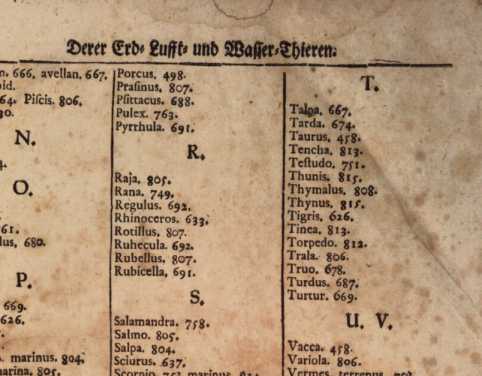 Derer Erd- Lufft- und Wasser-Thieren.
n. 666, avellan, 667.
oid.
64. Piscis. 806.
30.
N.
4.
O.
61.
lus, 680.
P.
669.
626.
marinus. 804.
marina. 805.
Porcus, 498.
Prasinus, 807.
Psittacus. 688.
Pulex. 763.
Pyrrhula. 691.
R.
Raja, 805.
Rana. 749.
Regulus. 692.
Rhinoceros. 633.
Rotillus, 807.
Ruhecula. 692.
Rubellus, 807.
Rubicella, 691.
S.
Salamandra. 758.
Salmo. 805.
Salpa. 804.
Sciurus. 637.
Scorpio, 752 marinus.
T.
Talpa, 667.
Tarda. 674.
Taurus, 458.
Tencha, 813.
Testudo, 751.
Thunis. 815.
Thymalus, 808.
Thynus, 815.
Tigris, 626.
Tinea, 813.
Torpedo. 812.
Trala. 806.
Truo, 678.
Turdus. 687.
Turtur. 669.
U. V.
Vacca, 458.
Variola. 806.
Vermes, terrenus,